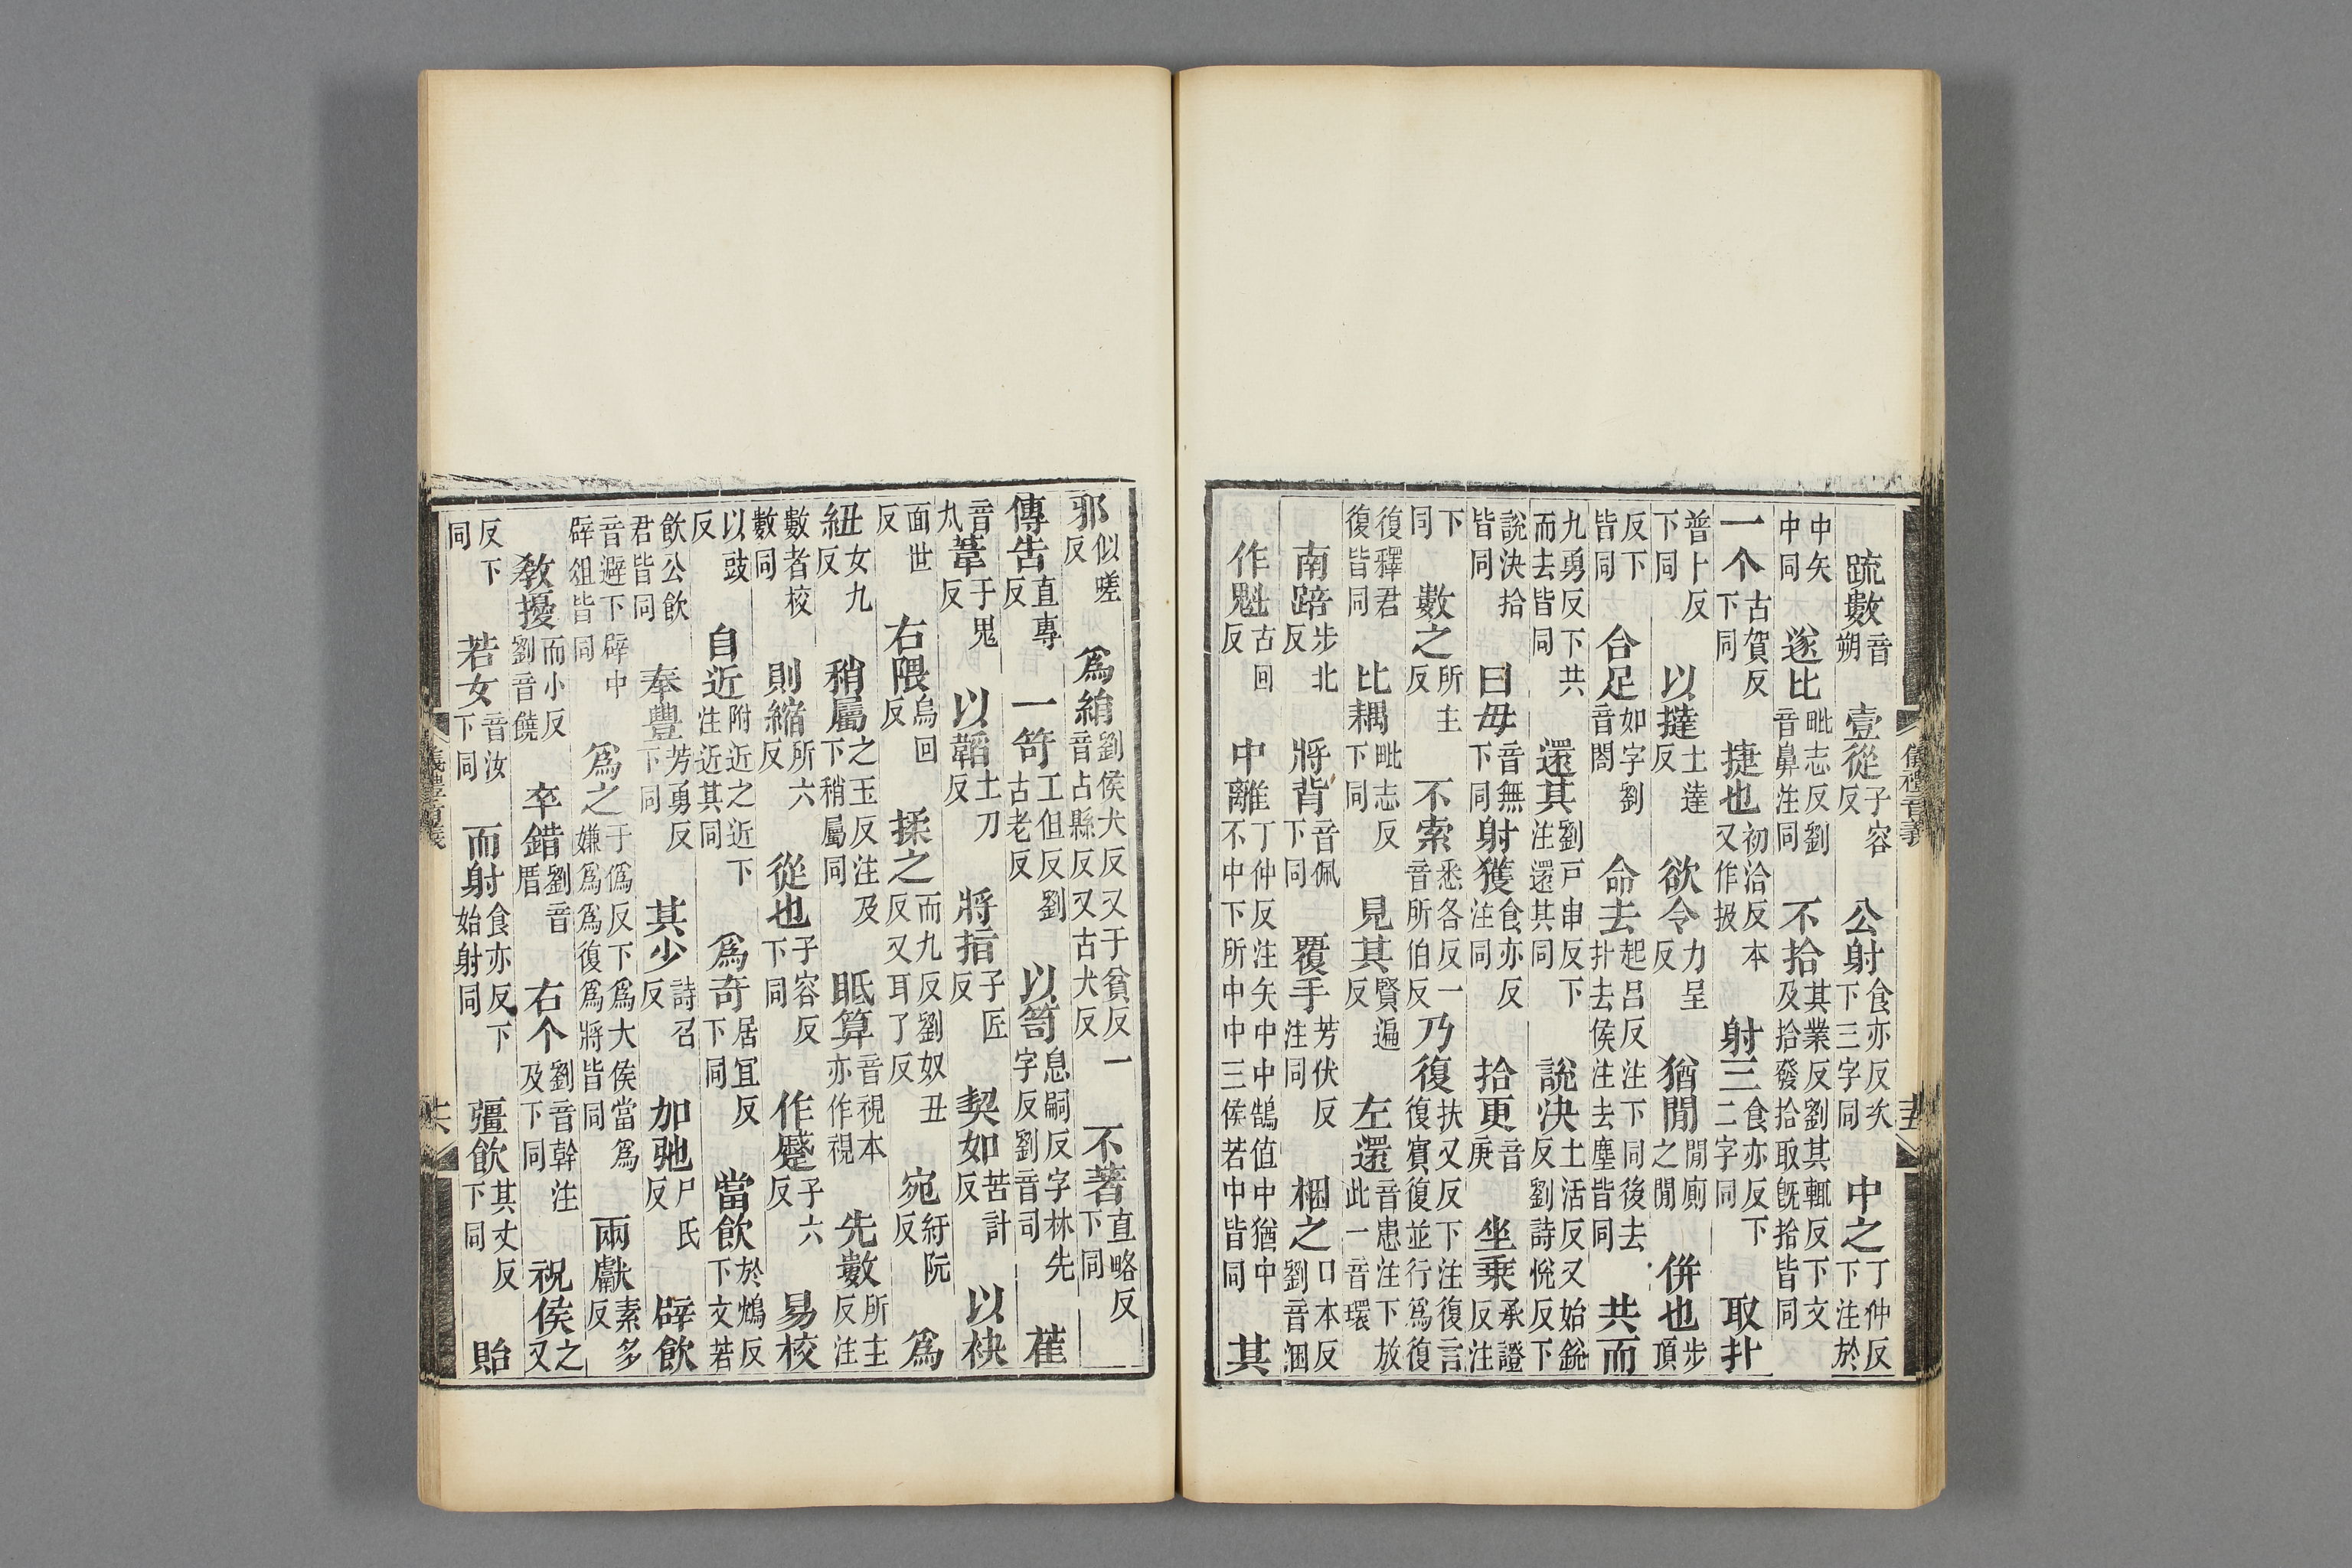 儀禮音義
疏數音朔 壹從子容反 公射食亦反次下三字同 中之丁仲反下注於
中矢中同 遂比毗志反劉音鼻注同 不拾其業反劉其輒反下文及拾發拾取旣拾皆同
一个古賀反下同 捷也初洽反本又作扱 射三食亦反下二字同 取扑
普卜反下同 以撻土達反 欲令力呈反 猶閒閒廁之閒 併也步頂
反下皆同 合足如字劉音閤 命去起呂反注下同後去扑去侯注去塵皆同 共而
九勇反下共而去皆同 還其劉戸串反下注還其同 說決土活反又始銳反劉詩悅反下
說決拾皆同 曰毋音無下同 射獲食亦反注同 拾更音庚 坐乗承證反注
下同 數之所主反 不索悉各反一音所伯反 乃復扶又反下注復言復賓復並行爲復
復釋君復皆同 比耦毗志反下同 見其賢遍反 左還音患注下放此一音環
南踣步北反 將背音佩下同 覆手芳伏反注同 梱之口本反劉音涃
作魁古回反 中離丁仲反注矢中中鵠值中猶中不中下所中中三侯若中皆同 其
邪似嗟反 爲絹劉侯犬反又于貧反一音占縣反又古犬反 不著直略反下同
傳告直專反 一笴工但反劉古老反 以笥息嗣反字林先字反劉音司 萑
音丸 葦于鬼反 以韜土刀反 將指子匠反 契如苦計反 以袂
面世反 右隈烏回反 揉之而九反劉奴丑反又耳了反 宛紆阮反 爲
紐女九反 稍屬之玉反注及下稍屬同 眂算音視本亦作視 先數所主反注
數者校數同 則縮所六反 從也子容反下同 作蹙子六反 易校
以豉反 自近附近之近下注近其同 爲奇居宜反下同 當飲於鴆反下文若
飲公飲君皆同 奉豐芳勇反下同 其少詩召反 加弛尸氏反 辟飲
音避下辟中辟俎皆同 爲之于僞反下爲大侯當爲嫌爲爲復爲將皆同 兩獻素多反
教擾而小反劉音饒 卒錯劉音厝 右个劉音幹注及下同 祝侯之又
反下同 若女音汝下同 而射食亦反下始射同 彊飲其丈反下同 貽
儀禮音義